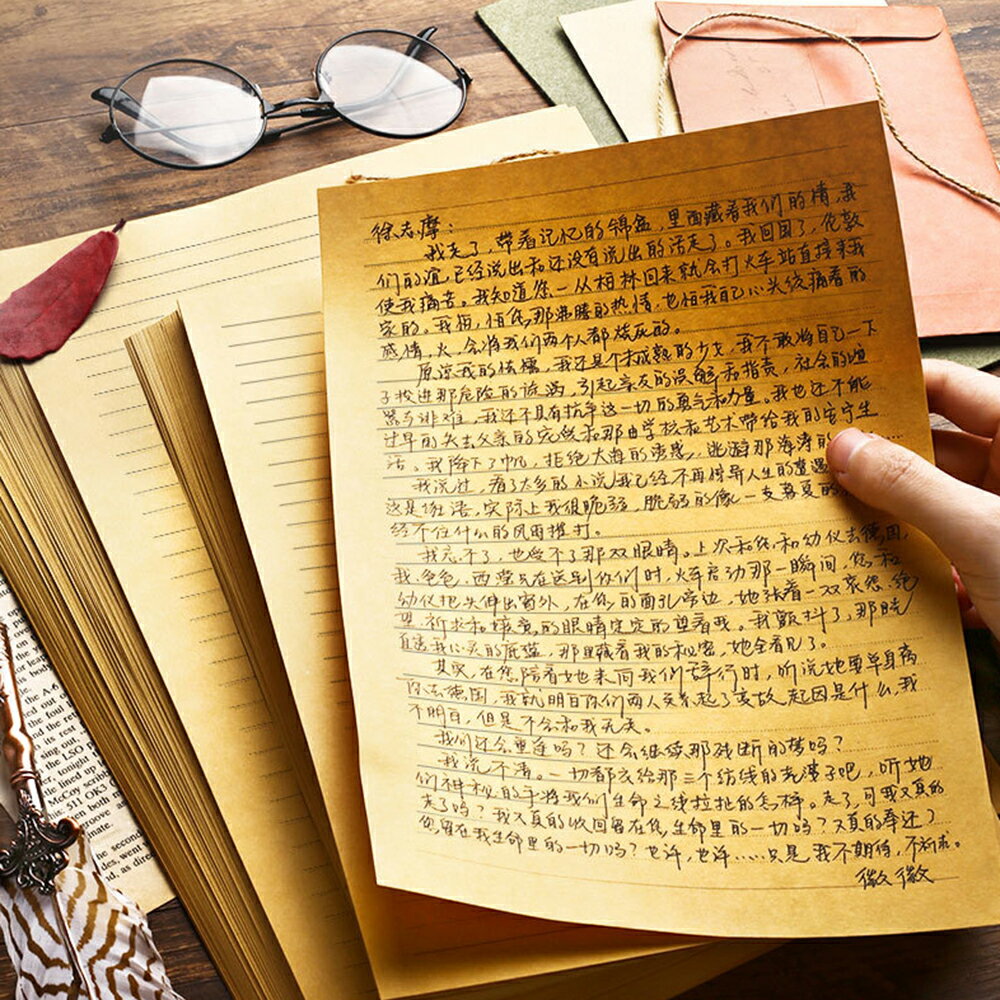 徐志摩：
我走了，带着记忆的锦盒，里面藏着我们的情，我
们的谊，已经说出和还没有说出的话走了。我回国了，伦敦
使我痛苦。我知道您一从柏林回来就会打火车站直接来我
家的。我怕，怕您那沸腾的热情，也怕我自己心头绞痛着的
感情，火，会将我们两个人都烧灰的。
原谅我的怯懦，我还是个未成熟的少女，我不敢将自己一下
子投进那危险的旋涡，引起亲友的误解和指责，社会的喧
嚣与诽难，我还不具有抗争这一切的勇气和力量。我也还不能
过早的失去父亲的宠爱和那由学校和艺术带给我的安宁生
活。我降下了帆，拒绝大海的诱惑，逃避那海涛的
我说过，看了太多的小说我已经不再惊异人生的遭遇
这是诳语，实际上我很脆弱，脆弱的像一支暮夏的
经不住什么的风雨推打。
我忘不了，也受不了那双眼睛。上次和您和幼仪去德国，
我、爸爸、西滢兄在送别你们时，火车启动那一瞬间，您和
幼仪把头伸出窗外，在您的面孔旁边，她张着一双哀怨、绝
望、祈求和嫉意的眼睛定定的望着我。我颤抖了，那眼
直透我心灵的底蕴，那里藏着我的秘密，她全看见了。
其实，在您陪着她来向我们辞行时，听说她要单身离
你去德国，我就明白你们两人关系起了变故，起因是什么，我
不明白，但是不会和我无关。
我们还会重逢吗？还会继续那残断的梦吗？
我说不清。一切都交给那三个纺线的老婆子吧，听她
们神秘的手将我们生命之线拉扯的怎样。走了，可我又真的
走了吗？我又真的收回留在您生命里的一切吗？又真的奉还了
您留在我生命里的一切吗？也许，也许……只是我不期待，不祈求。
徽徽
ate.
groove